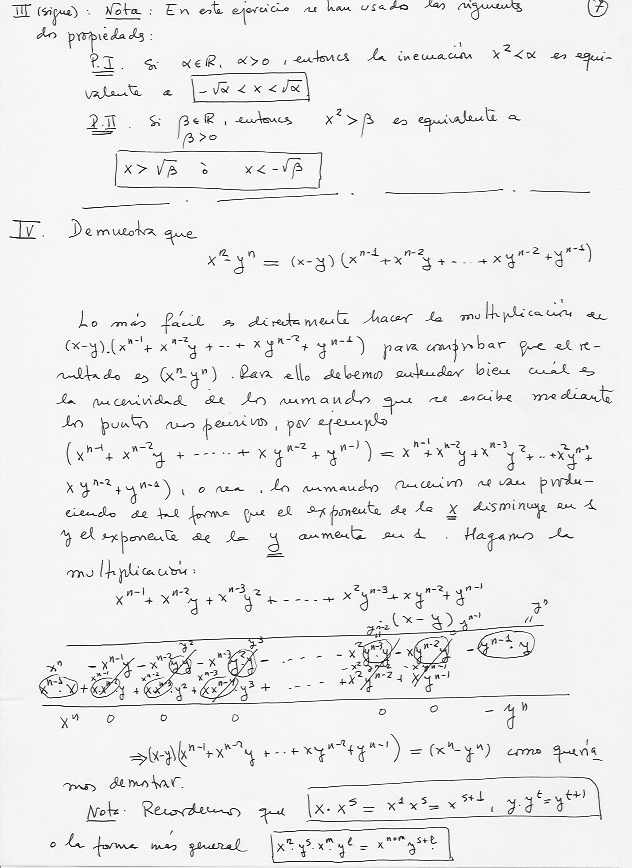 III (sigue): Nota: En este ejercicio se han usado las siguientes (7)
dos propiedads:
P.I. Si α∈R, α>0, entoncs la inecuación x²<α es equi-
valente a -√α < x < √α
P.II. Si β∈R, entoncs x²>β es equivalente a
β>0
x>√β ò x<-√β
IV. Demuestra que
xⁿ-yⁿ = (x-y)(xⁿ⁻¹+xⁿ⁻²y+----+xyⁿ⁻²+yⁿ⁻¹)
Lo más fácil es directamente hacer la multiplicación de
(x-y).(xⁿ⁻¹+xⁿ⁻²y+--+xyⁿ⁻²+yⁿ⁻¹) para comprobar que el re-
sultado es (xⁿ-yⁿ). Para ello debemos entender bien cuál es
la sucesividad de los sumandos que se escibe mediante
los puntos suspensivos, por ejemplo
(xⁿ⁻¹+xⁿ⁻²y+-----+xyⁿ⁻²+yⁿ⁻¹) = xⁿ⁻¹+xⁿ⁻²y+xⁿ⁻³y²+--+x²yⁿ⁻³+
xyⁿ⁻²+yⁿ⁻¹), o sea, los sumandos sucesivos se van produ-
ciendo de tal forma que el exponente de la x disminuye en 1
y el exponente de la y aumenta en 1. Hagamos la
multiplicación:
xⁿ⁻¹+xⁿ⁻²y+xⁿ⁻³y²+-----+x²yⁿ⁻³+xyⁿ⁻²+yⁿ⁻¹
(x-y)
xⁿ 0 0 0 0 0 -yⁿ
⇒(x-y)(xⁿ⁻¹+xⁿ⁻²y+--+xyⁿ⁻²+yⁿ⁻¹) = (xⁿ-yⁿ) como quería-
mos demostrar.
Nota. Recordemos que x·xˢ = x¹xˢ = xˢ⁺¹, y·yᵗ=yᵗ⁺¹
o la forma más general xⁿ·yˢ·xᵐ·yˡ = xⁿ⁺ᵐyˢ⁺ˡ